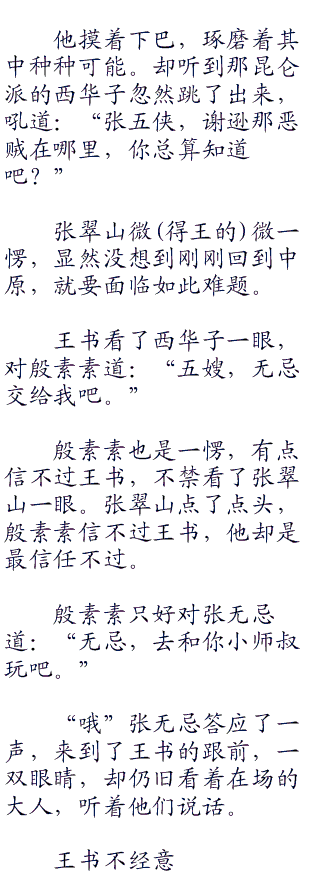 他摸着下巴，琢磨着其
中种种可能。却听到那昆仑
派的西华子忽然跳了出来，
吼道：“张五侠，谢逊那恶
贼在哪里，你总算知道
吧？”
张翠山微(得王的)微一
愣，显然没想到刚刚回到中
原，就要面临如此难题。
王书看了西华子一眼，
对殷素素道：“五嫂，无忌
交给我吧。”
殷素素也是一愣，有点
信不过王书，不禁看了张翠
山一眼。张翠山点了点头，
殷素素信不过王书，他却是
最信任不过。
殷素素只好对张无忌
道：“无忌，去和你小师叔
玩吧。”
“哦”张无忌答应了一
声，来到了王书的跟前，一
双眼睛，却仍旧看着在场的
大人，听着他们说话。
王书不经意